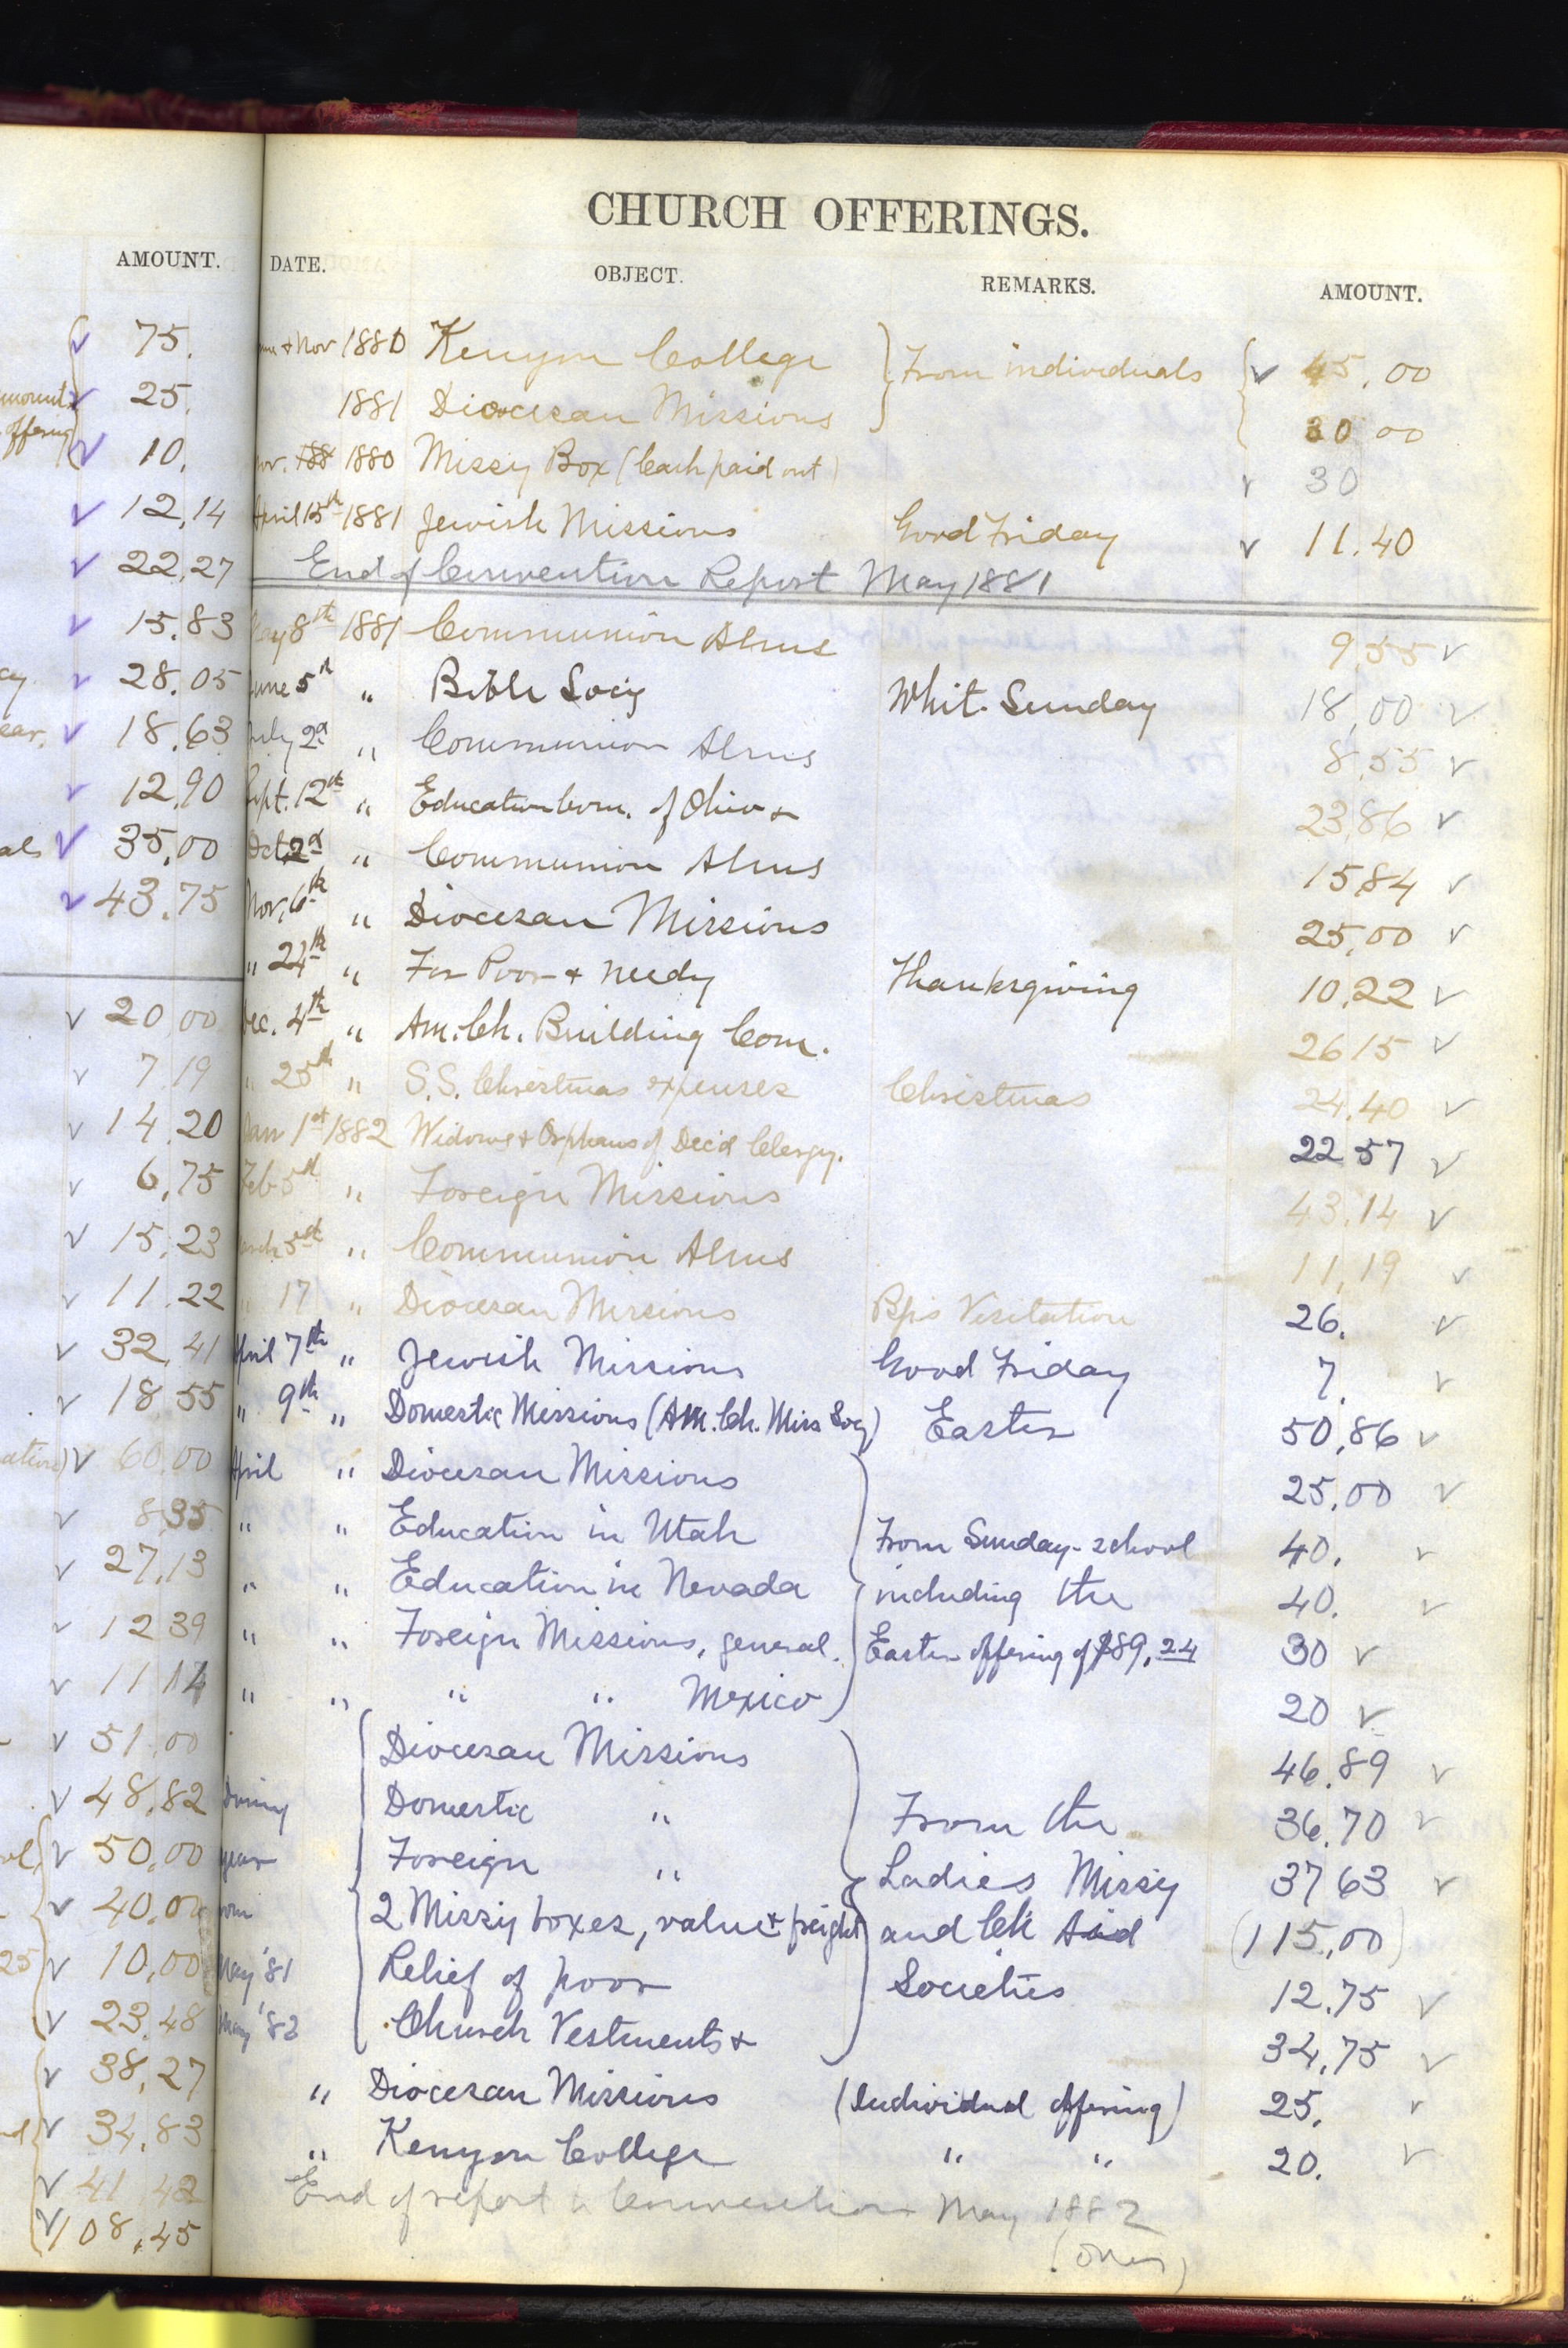 CHURCH OFFERINGS.
AMOUNT.
75.
25.
10.
12,14
22,27
15,83
28,05
18,63
12,90
35,00
43,75
20 00
7 19
14,20
6,75
15,23
11,22
32,41
18,55
60,00
8,35
27,13
12 39
11 14
51,00
48,82
50,00
40,00
10,00
23,48
38,27
34,83
41 42
108,45
DATE. OBJECT. REMARKS. AMOUNT.
& Nov 1880 Kenyon College } From individuals { 00
1881 Diocesan Missions 30 00
1880 Missy Box (Cash paid out) 30
April 15th 1881 Jewish Missions Good Friday 11.40
End of Convention Report May 1881
May 8th 1881 Communion Alms 9,55
June 5th " Bible Socy Whit. Sunday 18,00
July 2d " Communion Alms 8,55
Sept. 12th " Education Com. of Ohio & 23,86
Oct. 2d " Communion Alms 15,84
Nov. 6th " Diocesan Missions 25,00
" 24th " For Poor & needy Thanksgiving 10,22
Dec. 4th " Am. Ch. Building Com. 26 15
" 25th " S.S. Christmas expenses Christmas 24,40
Jan 1st 1882 Widows & Orphans of Dec'd Clergy. 22 57
Feb 5th " Foreign Missions 43,14
March 5th " Communion Alms 11,19
" 17 " Diocesan Missions Bps Visitation 26.
April 7th " Jewish Missions Good Friday 7.
" 9th " Domestic Missions (Am. Ch. Miss Socy) Easter 50,86
April " Diocesan Missions 25,00
" " Education in Utah From Sunday-school 40.
" " Education in Nevada including the 40.
" " Foreign Missions, general. Easter offering of $89,24 30
" " " " Mexico 20
Diocesan Missions 46,89
During Domestic " From the 36,70
year Foreign " Ladies Missy 37 63
from 2 Missy boxes, value & freight and Ch Aid (115,00)
May '81 Relief of poor Societies 12,75
May '82 Church Vestments & 34,75
" Diocesan Missions (Individual offering) 25.
" Kenyon College " " 20.
End of report to Convention May 1882
(over)